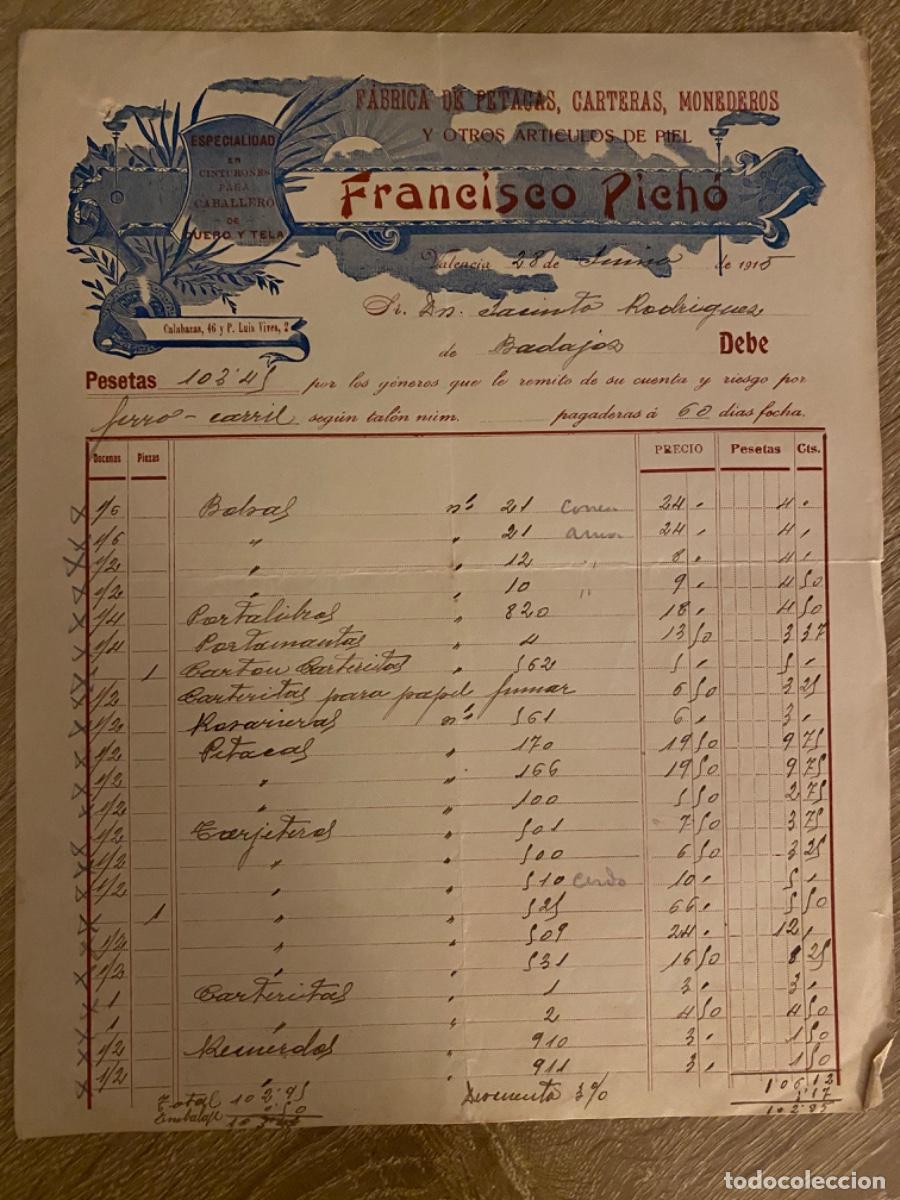 FÁBRICA DE PETACAS, CARTERAS, MONEDEROS
Y OTROS ARTICULOS DE PIEL
Francisco Pichó
ESPECIALIDAD
EN
CINTURONES
PARA
CABALLERO
- DE -
CUERO Y TELA
Calabazas, 46 y P. Luis Vives, 2
Valencia 28 de Junio de 1915
Sr. Dn. Jacinto Rodriguez
de Badajoz Debe
Pesetas 103'45 por los géneros que le remito de su cuenta y riesgo por
ferro-carril según talón núm. pagaderas á 60 dias fecha.
Docenas Piezas PRECIO Pesetas Cts.
1/6 Bolsas nº 21 24 , 4 ,
1/6 " " 21 24 , 4 ,
1/2 " " 12 " 8 , 4 ,
1/2 " " 10 " 9 , 4 50
1/4 Portalibros " 820 18 , 4 50
1/4 Portamantas " 4 13 50 3 37
1 Carton Carteritas " 562 5 , 5 ,
1/2 Carteritas para papel fumar 6 50 3 25
1/2 Rosarieras nº 561 6 , 3 ,
1/2 Petacas " 170 19 50 9 75
1/2 " " 166 19 50 9 75
1/2 " " 100 5 50 2 75
1/2 Tarjeteros " 501 7 50 3 75
1/2 " " 500 6 50 3 25
1/2 " " 510 Cerdo 10 , 5 ,
1 " " 525 66 , 5 50
1/2 " " 509 24 , 12 ,
1/2 " " 531 16 50 8 25
1 Carteritas " 1 3 , 3 ,
1 " " 2 4 50 4 50
1/2 Recuerdos " 910 3 , 1 50
1/2 " " 911 3 , 1 50
106 12
Total 102'95 Descuento 3% 3 17
Embalaje 0 50 102'95
todocoleccion
todocoleccion.net